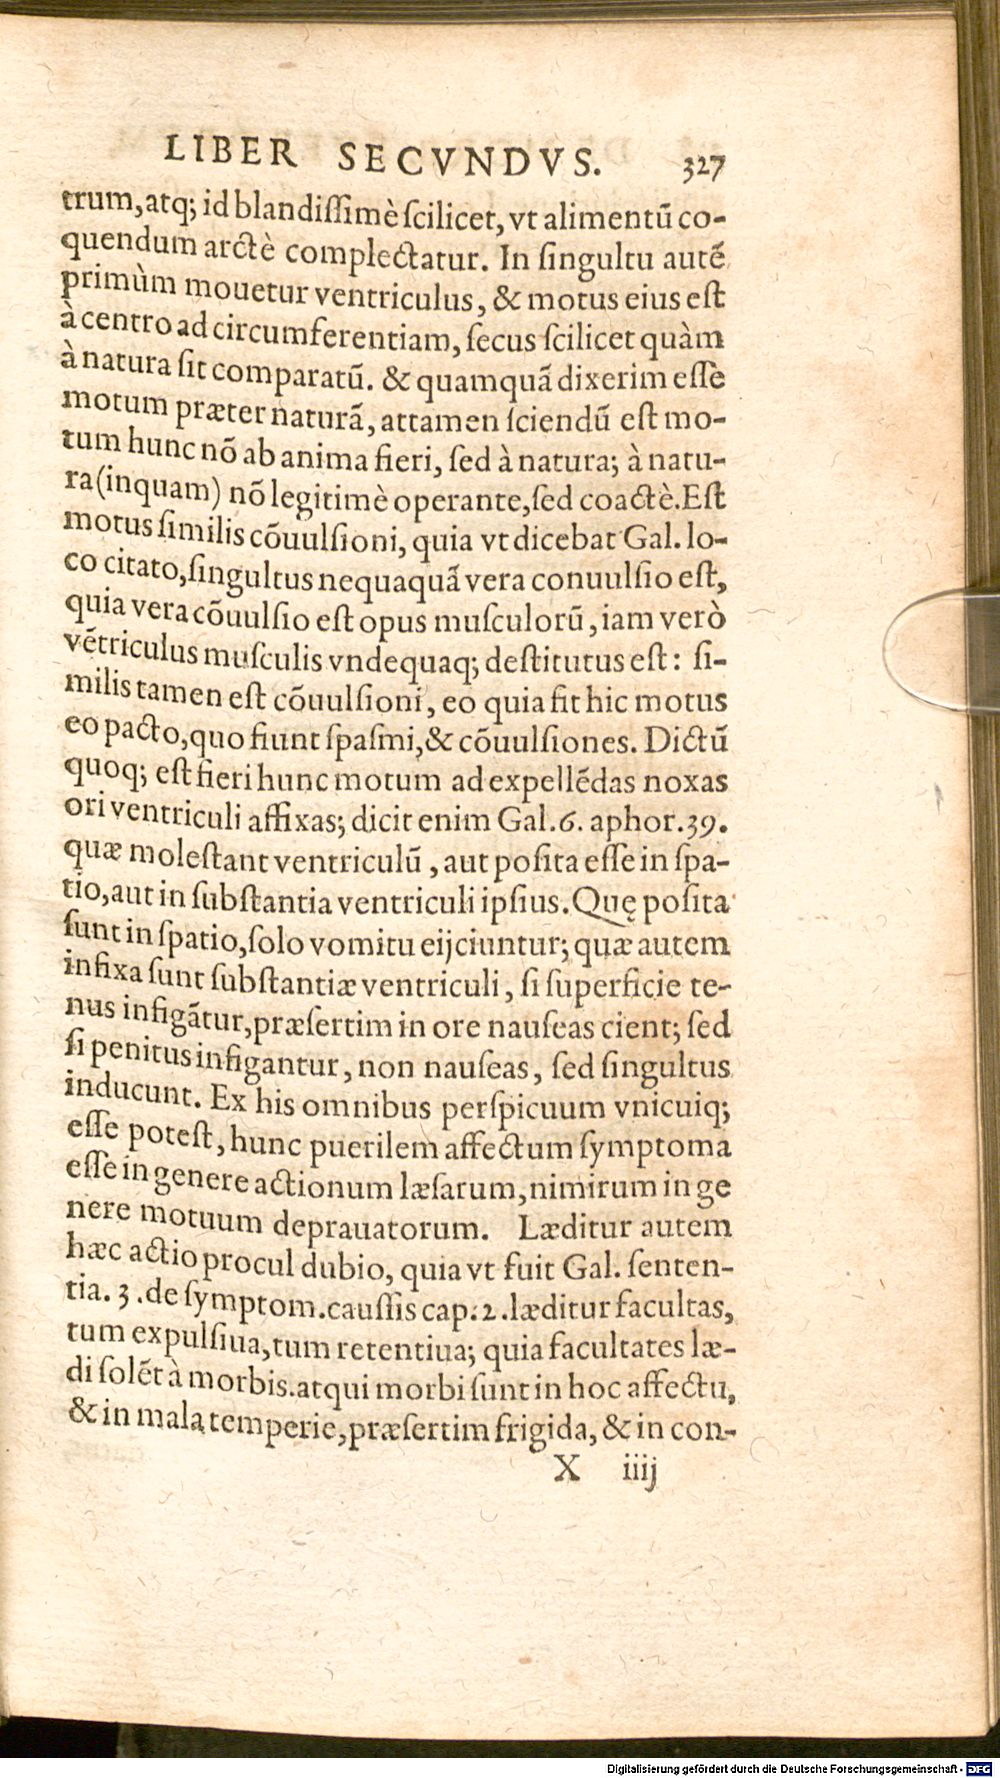 LIBER SECVNDVS. 327
trum, atq; id blandissimè scilicet, vt alimentũ co-
quendum arctè complectatur. In singultu autẽ
primùm mouetur ventriculus, & motus eius est
à centro ad circumferentiam, secus scilicet quàm
à natura sit comparatũ. & quamquã dixerim esse
motum præter naturã, attamen sciendũ est mo-
tum hunc nõ ab anima fieri, sed à natura; à natu-
ra (inquam) nõ legitimè operante, sed coactè. Est
motus similis cõuulsioni, quia vt dicebat Gal. lo-
co citato, singultus nequaquã vera conuulsio est,
quia vera cõuulsio est opus musculorũ, iam verò
vẽtriculus musculis vndequaq; destitutus est: si-
milis tamen est cõuulsioni, eo quia fit hic motus
eo pacto, quo fiunt spasmi, & cõuulsiones. Dictũ
quoq; est fieri hunc motum ad expellẽdas noxas
ori ventriculi affixas; dicit enim Gal. 6. aphor. 39.
quæ molestant ventriculũ, aut posita esse in spa-
tio, aut in substantia ventriculi ipsius. Quę posita
sunt in spatio, solo vomitu eijciuntur; quæ autem
infixa sunt substantiæ ventriculi, si superficie te-
nus infigãtur, præsertim in ore nauseas cient; sed
si penitus infigantur, non nauseas, sed singultus
inducunt. Ex his omnibus perspicuum vnicuiq;
esse potest, hunc puerilem affectum symptoma
esse in genere actionum læsarum, nimirum in ge
nere motuum deprauatorum. Læditur autem
hæc actio procul dubio, quia vt fuit Gal. senten-
tia. 3. de symptom. caussis cap. 2. læditur facultas,
tum expulsiua, tum retentiua; quia facultates læ-
di solẽt à morbis. atqui morbi sunt in hoc affectu,
& in mala temperie, præsertim frigida, & in con-
X iiij
Digitalisierung gefördert durch die Deutsche Forschungsgemeinschaft - DFG